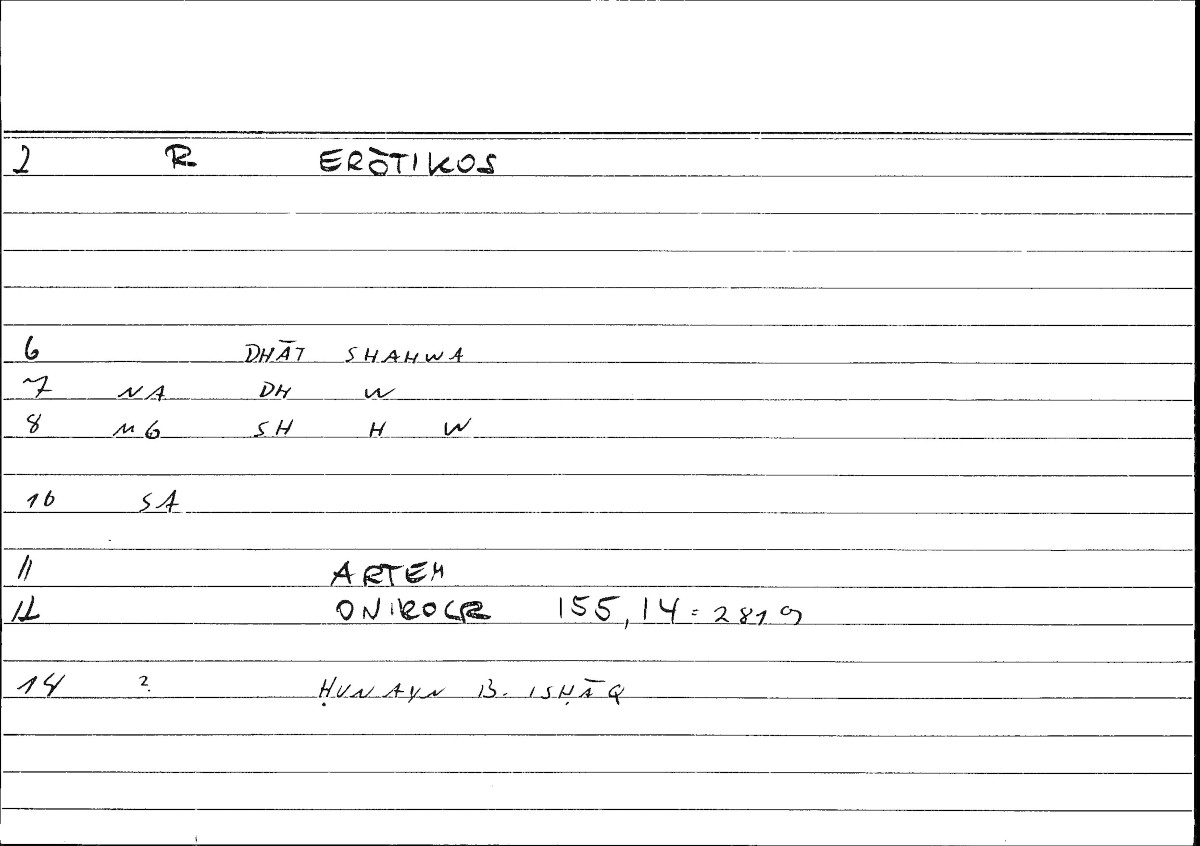 2 R ERŌTIKOS
6 DHĀT SHAHWA
7 NA DH W
8 MG SH H W
10 SA
11 ARTEM
12 ONIROCR 155,14 = 281 9
14 2. ḤUNAYN B. ISḤĀQ